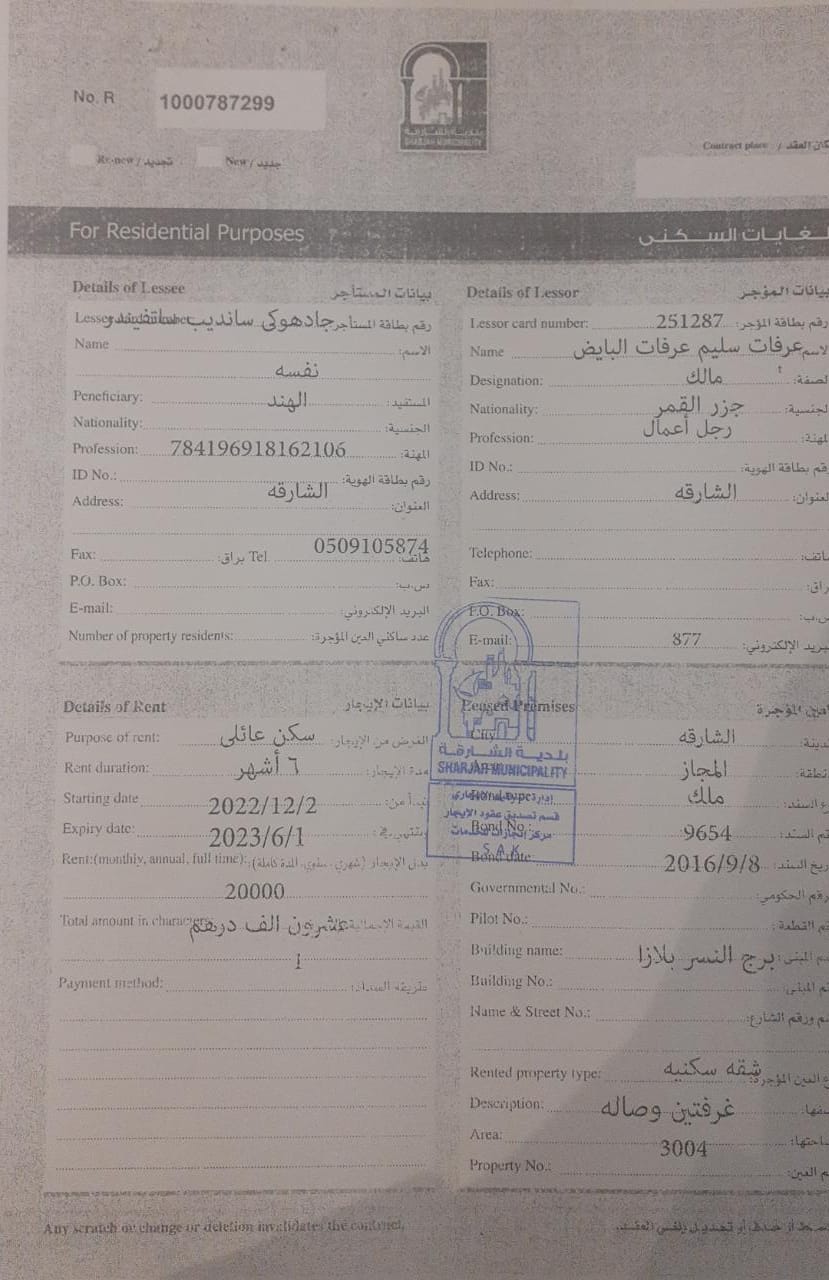 No. R 1000787299
بلدية الشارقة
SHARJAH MUNICIPALITY
Re-new / تجديد New / جديد
Contract place / كان العقد
For Residential Purposes لغايات السكنى
Details of Lessee بيانات المستأجر
رقم بطاقة المستأجر جادهوكى سانديب
Name الاسم:
نفسه
Peneficiary: الهند المستفيد:
Nationality: الجنسية:
Profession: 784196918162106 المهنة:
ID No.: رقم بطاقة الهوية:
Address: الشارقه العنوان:
Fax: براق: Tel 0509105874 هاتف:
P.O. Box: س.ب:
E-mail: البريد الإلكتروني:
Number of property residents: عدد ساكني العين المؤجرة:
Details of Lessor بيانات المؤجر
Lessor card number: 251287 رقم بطاقة المؤجر:
Name عرفات سليم عرفات البايض الاسم
Designation: مالك لصفة:
Nationality: جزر القمر لجنسية:
Profession: رجل أعمال لمهنة:
ID No.: رقم بطاقة الهوية:
Address: الشارقه لعنوان:
Telephone: هاتف:
Fax: راق:
P.O. Box: س.ب:
E-mail: 877 بريد الإلكتروني:
Details of Rent بيانات الإيجار
Purpose of rent: سكن عائلى الغرض من الإيجار:
Rent duration: ٦ أشهر مدة الإيجار:
Starting date 2022/12/2
Expiry date: 2023/6/1
Rent:(monthly, annual, full time): بدل الإيجار (شهري، سنوي، المدة كاملة):
20000
Total amount in characters عشرون الف درهم
1
Payment method: طريقة السداد:
Leased Premises المؤجرة
City الشارقه دينة:
المجاز نطقة:
Bond type ملك ع السند:
Bond No. 9654 م السند:
Bond date: 2016/9/8 ريخ السند:
Governmental No.: رقم الحكومي:
Pilot No.: م القطعة:
Building name: برج النسر بلازا م المبنى:
Building No.: م المبنى:
Name & Street No.: م ورقم الشارع:
Rented property type: شقه سكنيه العين المؤجرة:
Description: غرفتين وصاله
Area: 3004 احتها:
Property No.: م العين:
بلدية الشارقة
SHARJAH MUNICIPALITY
قسم تصديق عقود الايجار
S.A.K
Any scratch or change or deletion invalidates the contract.